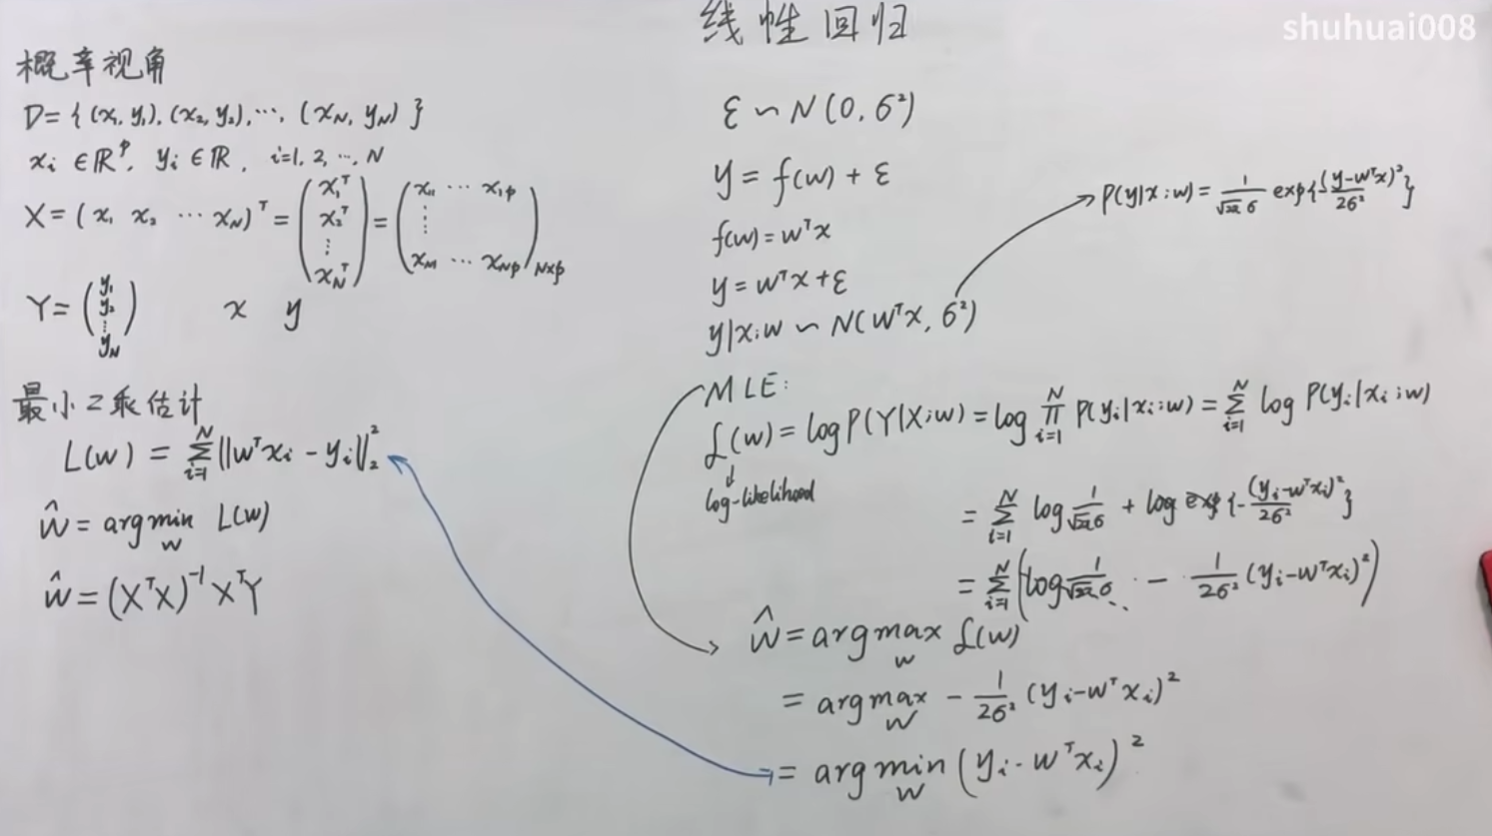 线性回归
shuhuai008
概率视角
D={(x₁,y₁),(x₂,y₂),⋯,(x_N,y_N)}
xᵢ∈ℝᵖ, yᵢ∈ℝ, i=1,2,⋯,N
X=(x₁ x₂ ⋯ x_N)ᵀ=(x₁ᵀ x₂ᵀ ⋮ x_Nᵀ)=(x₁₁ ⋯ x₁ₚ ⋮ x_N₁ ⋯ x_Nₚ)_N×p
Y=(y₁ y₂ ⋮ y_N) x y
最小2乘估计
L(w)=∑_{i=1}^N ||wᵀxᵢ-yᵢ||₂²
ŵ=argmin_w L(w)
ŵ=(XᵀX)⁻¹XᵀY
ε∽N(0,σ²)
y=f(w)+ε
f(w)=wᵀx
y=wᵀx+ε
y|x;w∽N(wᵀx,σ²)
P(y|x;w)=1/(√2π σ) exp{-(y-wᵀx)²/2σ²}
MLE:
ℒ(w)=log P(Y|X;w)=log ∏_{i=1}^N P(yᵢ|xᵢ;w)=∑_{i=1}^N log P(yᵢ|xᵢ;w)
↓
log-likelihood
=∑_{i=1}^N log 1/(√2π σ) + log exp{-(yᵢ-wᵀxᵢ)²/2σ²}
=∑_{i=1}^N (log 1/(√2π σ) - 1/2σ² (yᵢ-wᵀxᵢ)²)
ŵ=argmax_w ℒ(w)
=argmax_w - 1/2σ² (yᵢ-wᵀxᵢ)²
=argmin_w (yᵢ-wᵀxᵢ)²